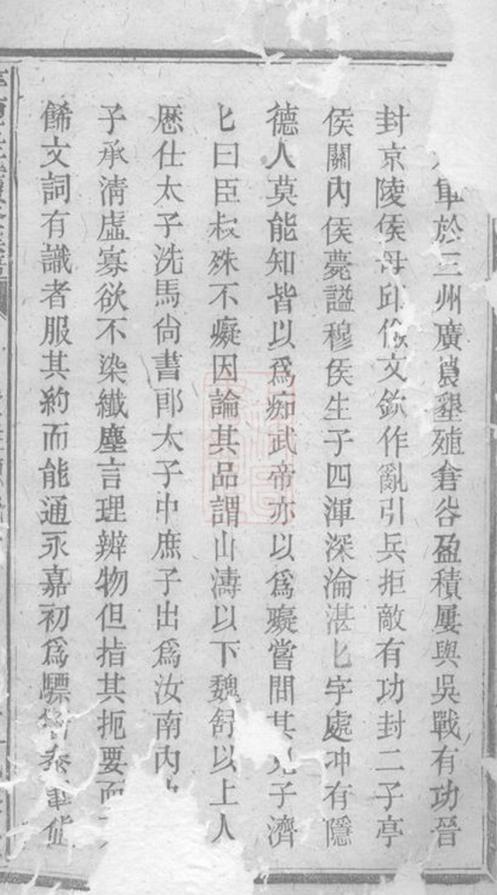 軍於三州廣農墾殖倉谷盈積屢與吳戰有功晉
封京陵侯毋邱儉文欽作亂引兵拒敵有功封二子亭
侯關內侯薨謚穆侯生子四渾深淪湛匕字處冲有隱
德人莫能知皆以爲痴武帝亦以爲癡嘗問其兄子濟
匕曰臣叔殊不癡因論其品謂山濤以下魏舒以上人
歷仕太子洗馬尙書郎太子中庶子出爲汝南內
子承淸虛寡欲不染纖塵言理辨物但指其扼要而
餙文詞有識者服其約而能通永嘉初爲驃